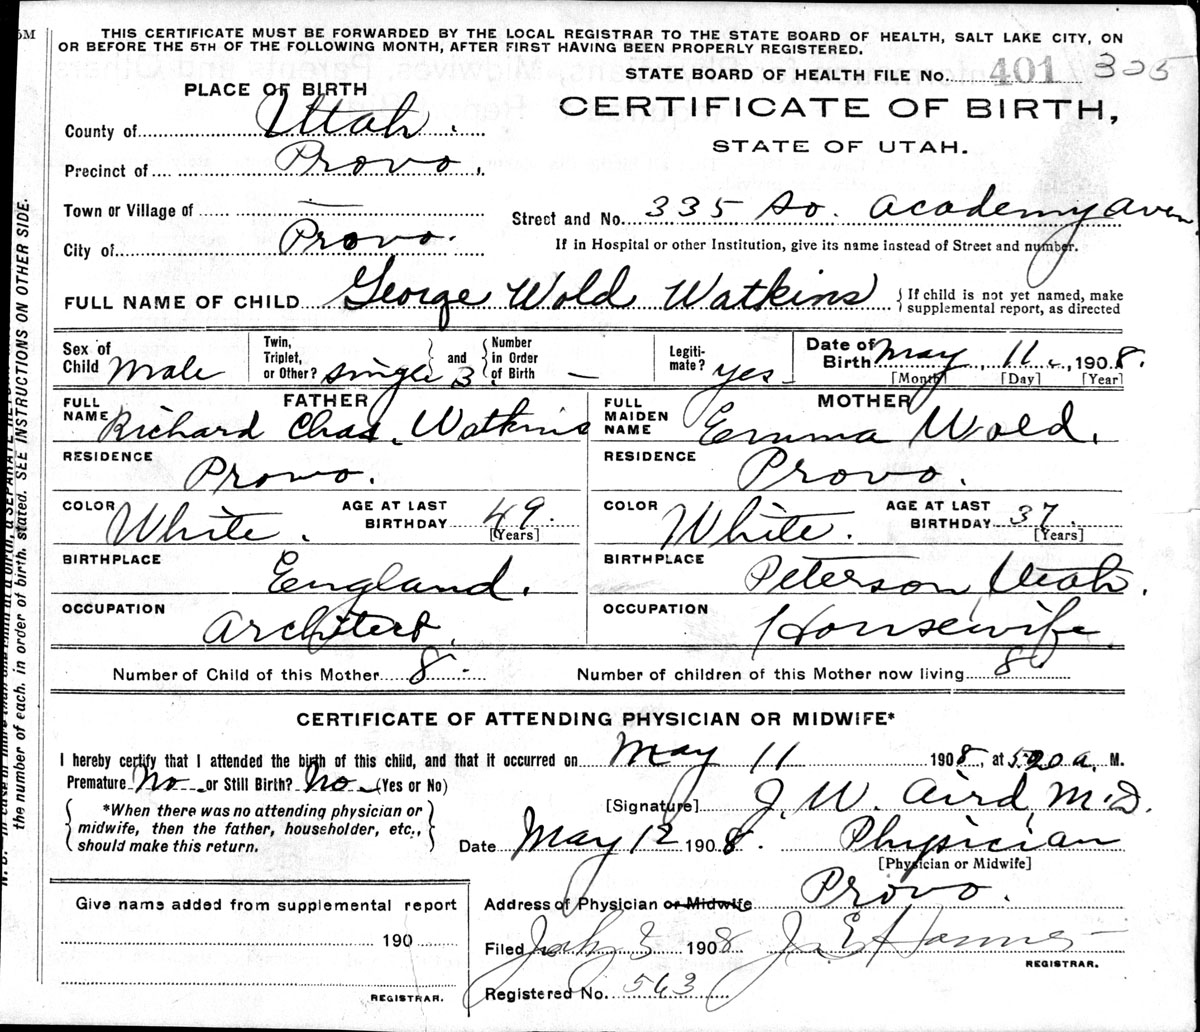 5M
THIS CERTIFICATE MUST BE FORWARDED BY THE LOCAL REGISTRAR TO THE STATE BOARD OF HEALTH, SALT LAKE CITY, ON
OR BEFORE THE 5TH OF THE FOLLOWING MONTH, AFTER FIRST HAVING BEEN PROPERLY REGISTERED.
STATE BOARD OF HEALTH FILE No. 401 325
PLACE OF BIRTH
CERTIFICATE OF BIRTH,
STATE OF UTAH.
County of Utah.
Precinct of Provo.
Town or Village of —
Street and No. 335 So. Academy Aven
City of Provo.
If in Hospital or other Institution, give its name instead of Street and number.
FULL NAME OF CHILD George Wold Watkins { If child is not yet named, make supplemental report, as directed
Sex of Child Male
Twin, Triplet, or Other? single } and { Number in Order of Birth —
Legiti-mate? yes
Date of Birth May 11, 1908.
[Month] [Day] [Year]
FATHER
FULL NAME Richard Chas. Watkins
MOTHER
FULL MAIDEN NAME Emma Wold.
RESIDENCE Provo.
RESIDENCE Provo.
COLOR White. AGE AT LAST BIRTHDAY 49. [Years]
COLOR White. AGE AT LAST BIRTHDAY 37. [Years]
BIRTHPLACE England.
BIRTHPLACE Peterson Utah.
OCCUPATION Architect.
OCCUPATION Housewife.
Number of Child of this Mother 8 - Number of children of this Mother now living 8
CERTIFICATE OF ATTENDING PHYSICIAN OR MIDWIFE*
I hereby certify that I attended the birth of this child, and that it occurred on May 11 1908, at 5:20 a. M.
Premature No or Still Birth? No (Yes or No)
*When there was no attending physician or midwife, then the father, householder, etc., should make this return.
[Signature] J. W. Aird, M.D.
Date May 12 1908. Physician
[Physician or Midwife]
Address of Physician or Midwife Provo.
Give name added from supplemental report
190
REGISTRAR.
Filed July 3 1908
REGISTRAR.
Registered No. 563
the number of each, in order of birth, stated. SEE INSTRUCTIONS ON OTHER SIDE.